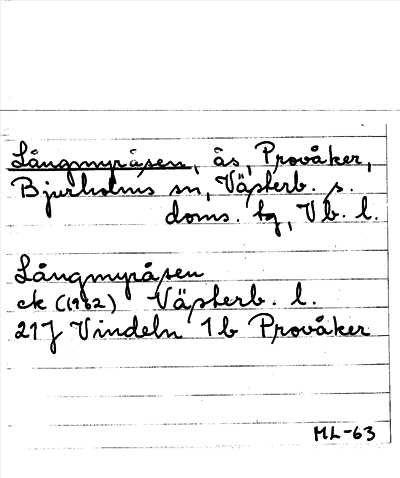 Långmyråsen, ås, Provåker,
Bjurholms sn, Västerb. s.
doms. tg, Vb. l.
Långmyråsen
ek (1962) Västerb. l.
21J Vindeln 1b Provåker
ML-63